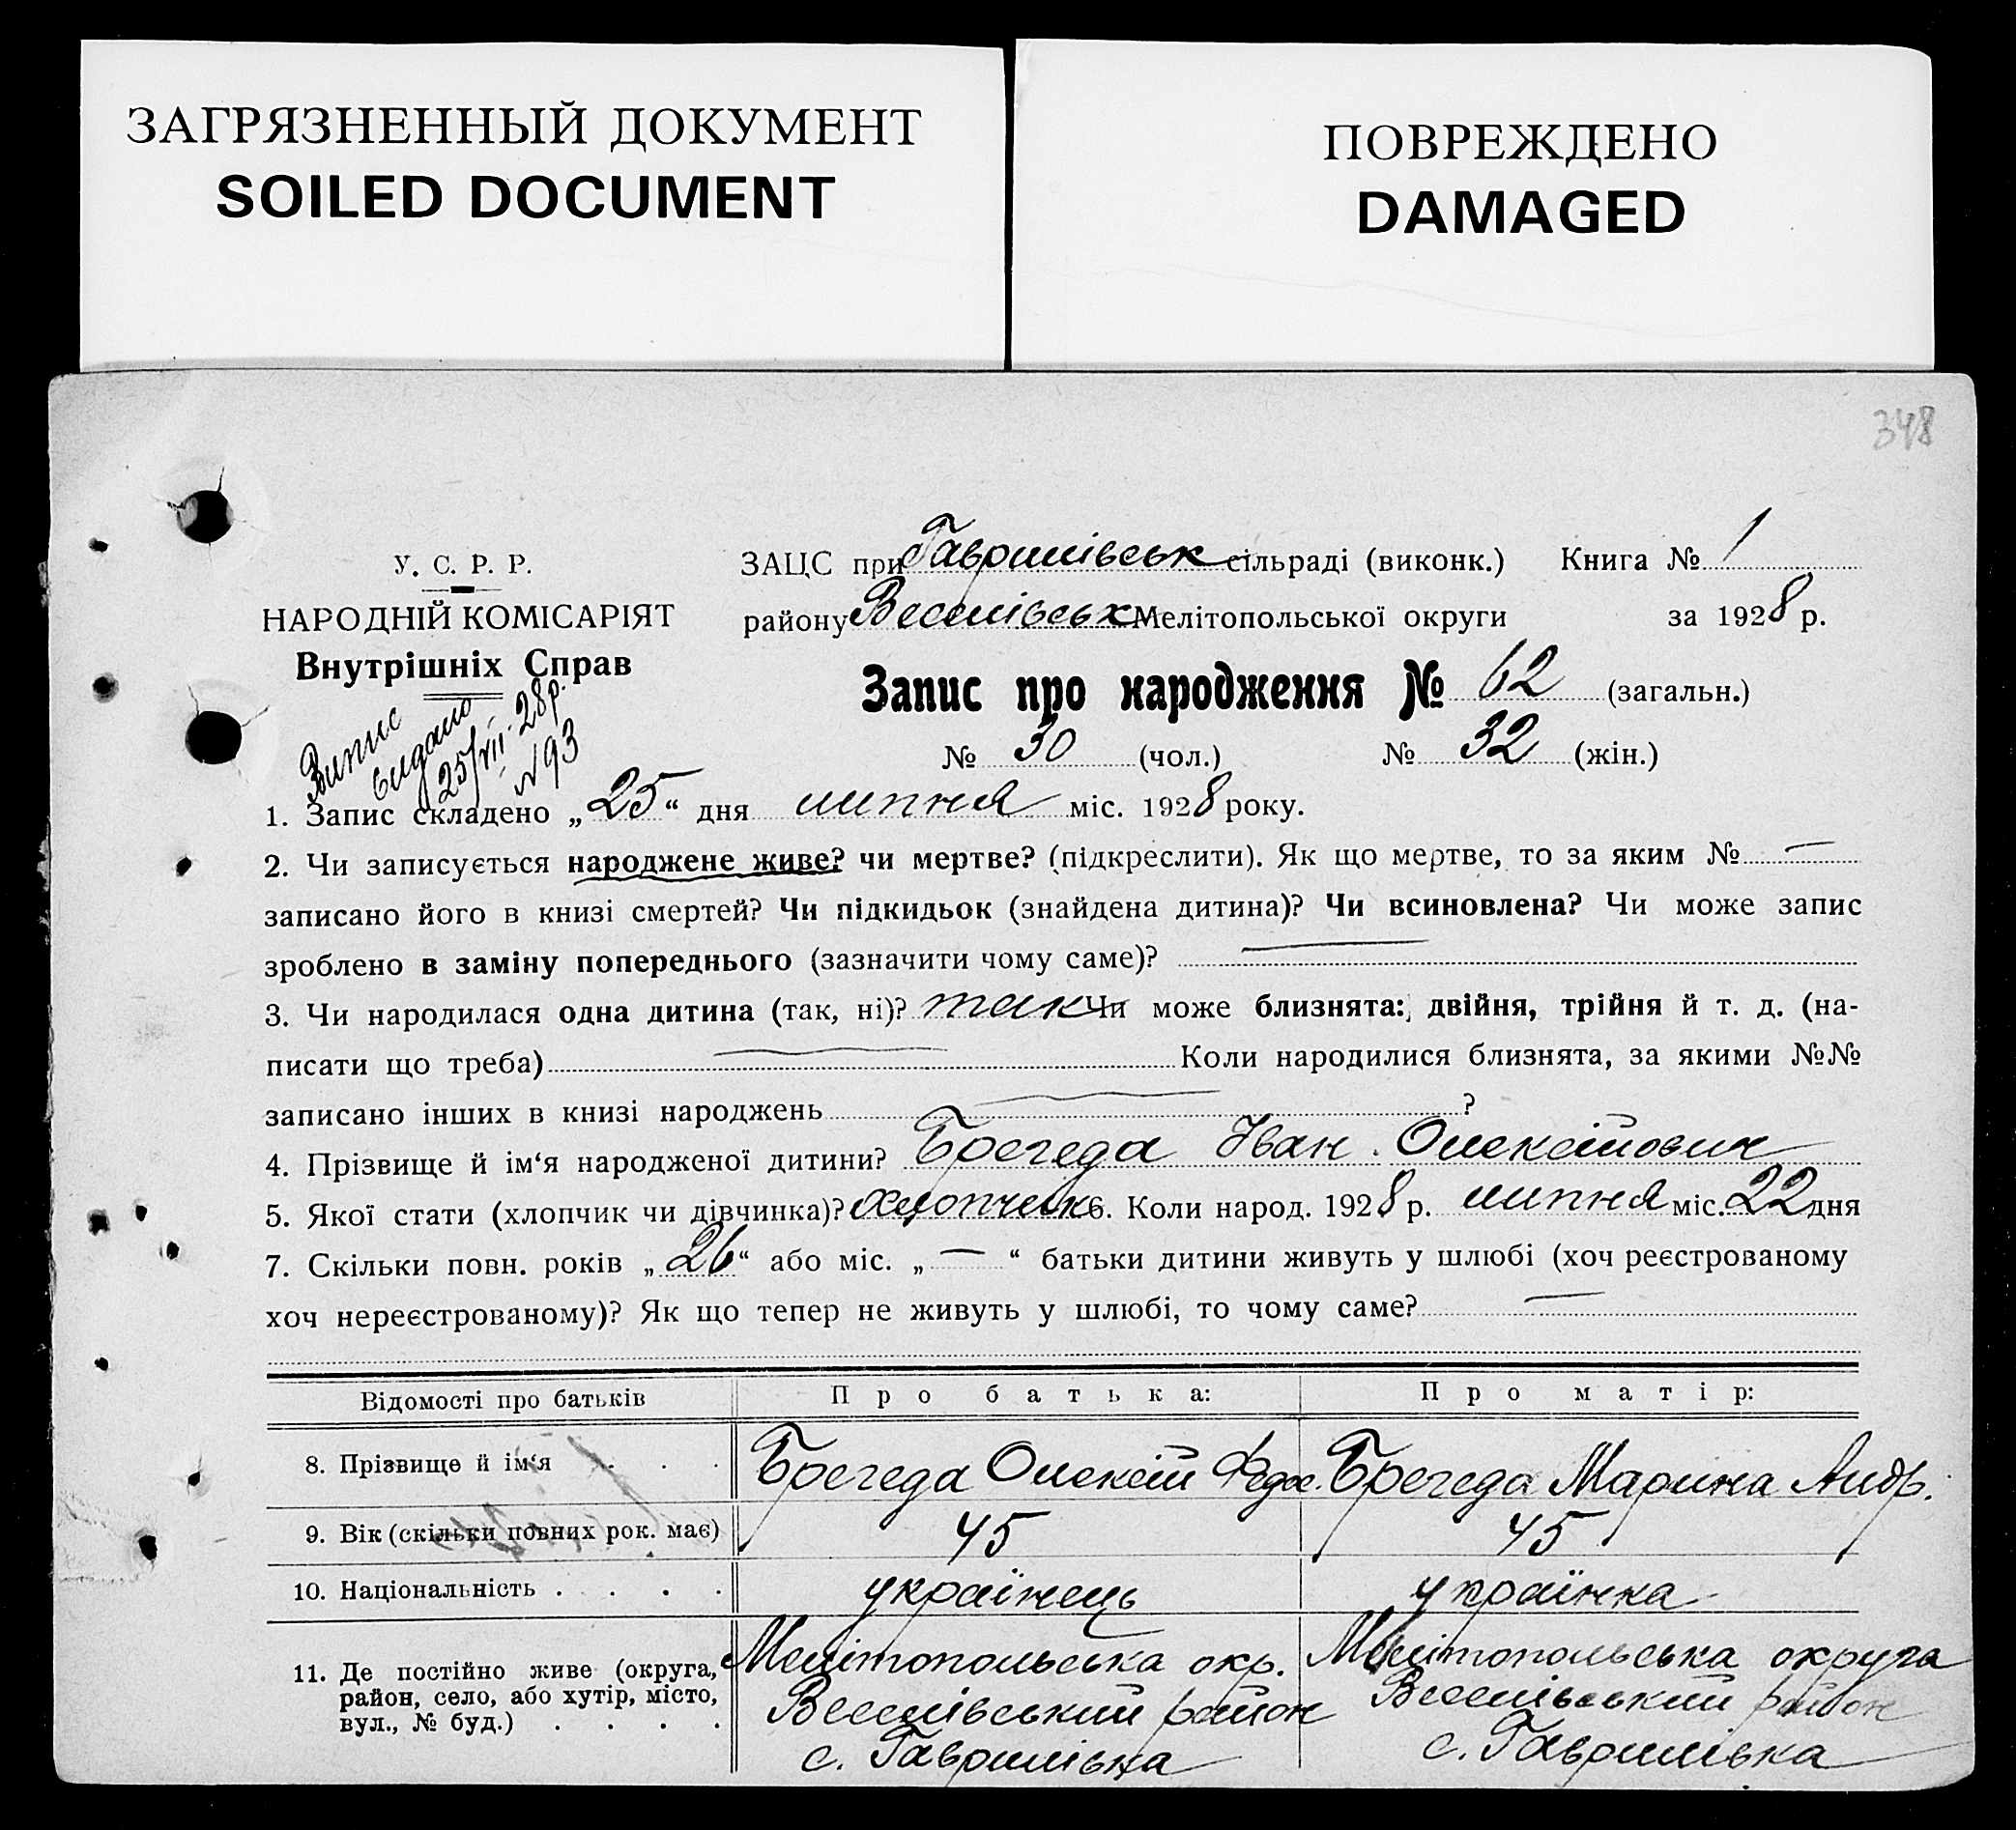 ЗАГРЯЗНЕННЫЙ ДОКУМЕНТ
SOILED DOCUMENT
ПОВРЕЖДЕНО
DAMAGED
348
У. С. Р. Р.
НАРОДНІЙ КОМІСАРІЯТ
Внутрішніх Справ
Випис
видано
25/VII-28р.
№ 93
ЗАЦС при Гаврилівськ сільраді (виконк.) Книга № 1
району Веселівськ Мелітопольської округи за 1928 р.
Запис про народження № 62 (загальн.)
№ 30 (чол.) № 32 (жін.)
1. Запис складено „25“ дня липня міс. 1928 року.
2. Чи записується народжене живе? чи мертве? (підкреслити). Як що мертве, то за яким № —
записано його в книзі смертей? Чи підкидьок (знайдена дитина)? Чи всиновлена? Чи може запис
зроблено в заміну попереднього (зазначити чому саме)? —
3. Чи народилася одна дитина (так, ні)? так Чи може близнята: двійня, трійня й т. д. (на-
писати що треба) — Коли народилися близнята, за якими №№
записано інших в книзі народжень — ?
4. Прізвище й ім‘я народженої дитини? Брегеда Іван Олексійович
5. Якої стати (хлопчик чи дівчинка)? хлопчик 6. Коли народ. 1928 р. липня міс. 22 дня
7. Скільки повн. років „26“ або міс. „—“ батьки дитини живуть у шлюбі (хоч реєстрованому
хоч нереєстрованому)? Як що тепер не живуть у шлюбі, то чому саме? —
Відомості про батьків Про батька: Про матір:
8. Прізвище й ім‘я . . . Брегеда Олексій Федос. Брегеда Марина Андр.
9. Вік (скільки повних рок. має) 45 45
10. Національність . . . . українець українка
11. Де постійно живе (округа, Мелітопольська окр. Мелітопольська округа
район, село, або хутір, місто, Веселівський район Веселівський район
вул., № буд.) . . . . с. Гаврилівка с. Гаврилівка